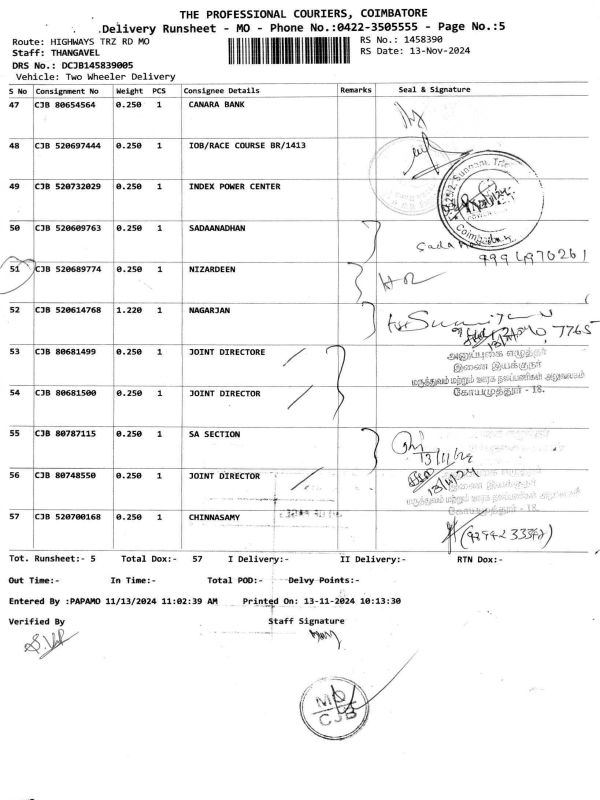 THE PROFESSIONAL COURIERS, COIMBATORE
Delivery Runsheet - MO - Phone No.:0422-3505555 - Page No.:5
Route: HIGHWAYS TRZ RD MO
RS No.: 1458390
Staff: THANGAVEL
RS Date: 13-Nov-2024
DRS No.: DCJB145839005
Vehicle: Two Wheeler Delivery
S No Consignment No Weight PCS Consignee Details Remarks Seal & Signature
47 CJB 80654564 0.250 1 CANARA BANK
48 CJB 520697444 0.250 1 IOB/RACE COURSE BR/1413
49 CJB 520732029 0.250 1 INDEX POWER CENTER
50 CJB 520609763 0.250 1 SADAANADHAN
9994970261
51 CJB 520689774 0.250 1 NIZARDEEN
52 CJB 520614768 1.220 1 NAGARJAN
53 CJB 80681499 0.250 1 JOINT DIRECTORE
அனுப்புகை எழுத்தர்
இணை இயக்குநர்
மருத்துவம் மற்றும் ஊரக நலப்பணிகள் அலுவலகம்
கோயமுத்தூர் - 18.
54 CJB 80681500 0.250 1 JOINT DIRECTOR
55 CJB 80787115 0.250 1 SA SECTION
13/11/24
56 CJB 80748550 0.250 1 JOINT DIRECTOR
13/11/24
கோயமுத்தூர் - 18.
57 CJB 520700168 0.250 1 CHINNASAMY
Tot. Runsheet:- 5 Total Dox:- 57 I Delivery:- II Delivery:- RTN Dox:-
Out Time:- In Time:- Total POD:- Delvy Points:-
Entered By :PAPAMO 11/13/2024 11:02:39 AM Printed On: 13-11-2024 10:13:30
Verified By Staff Signature
MO
CJB